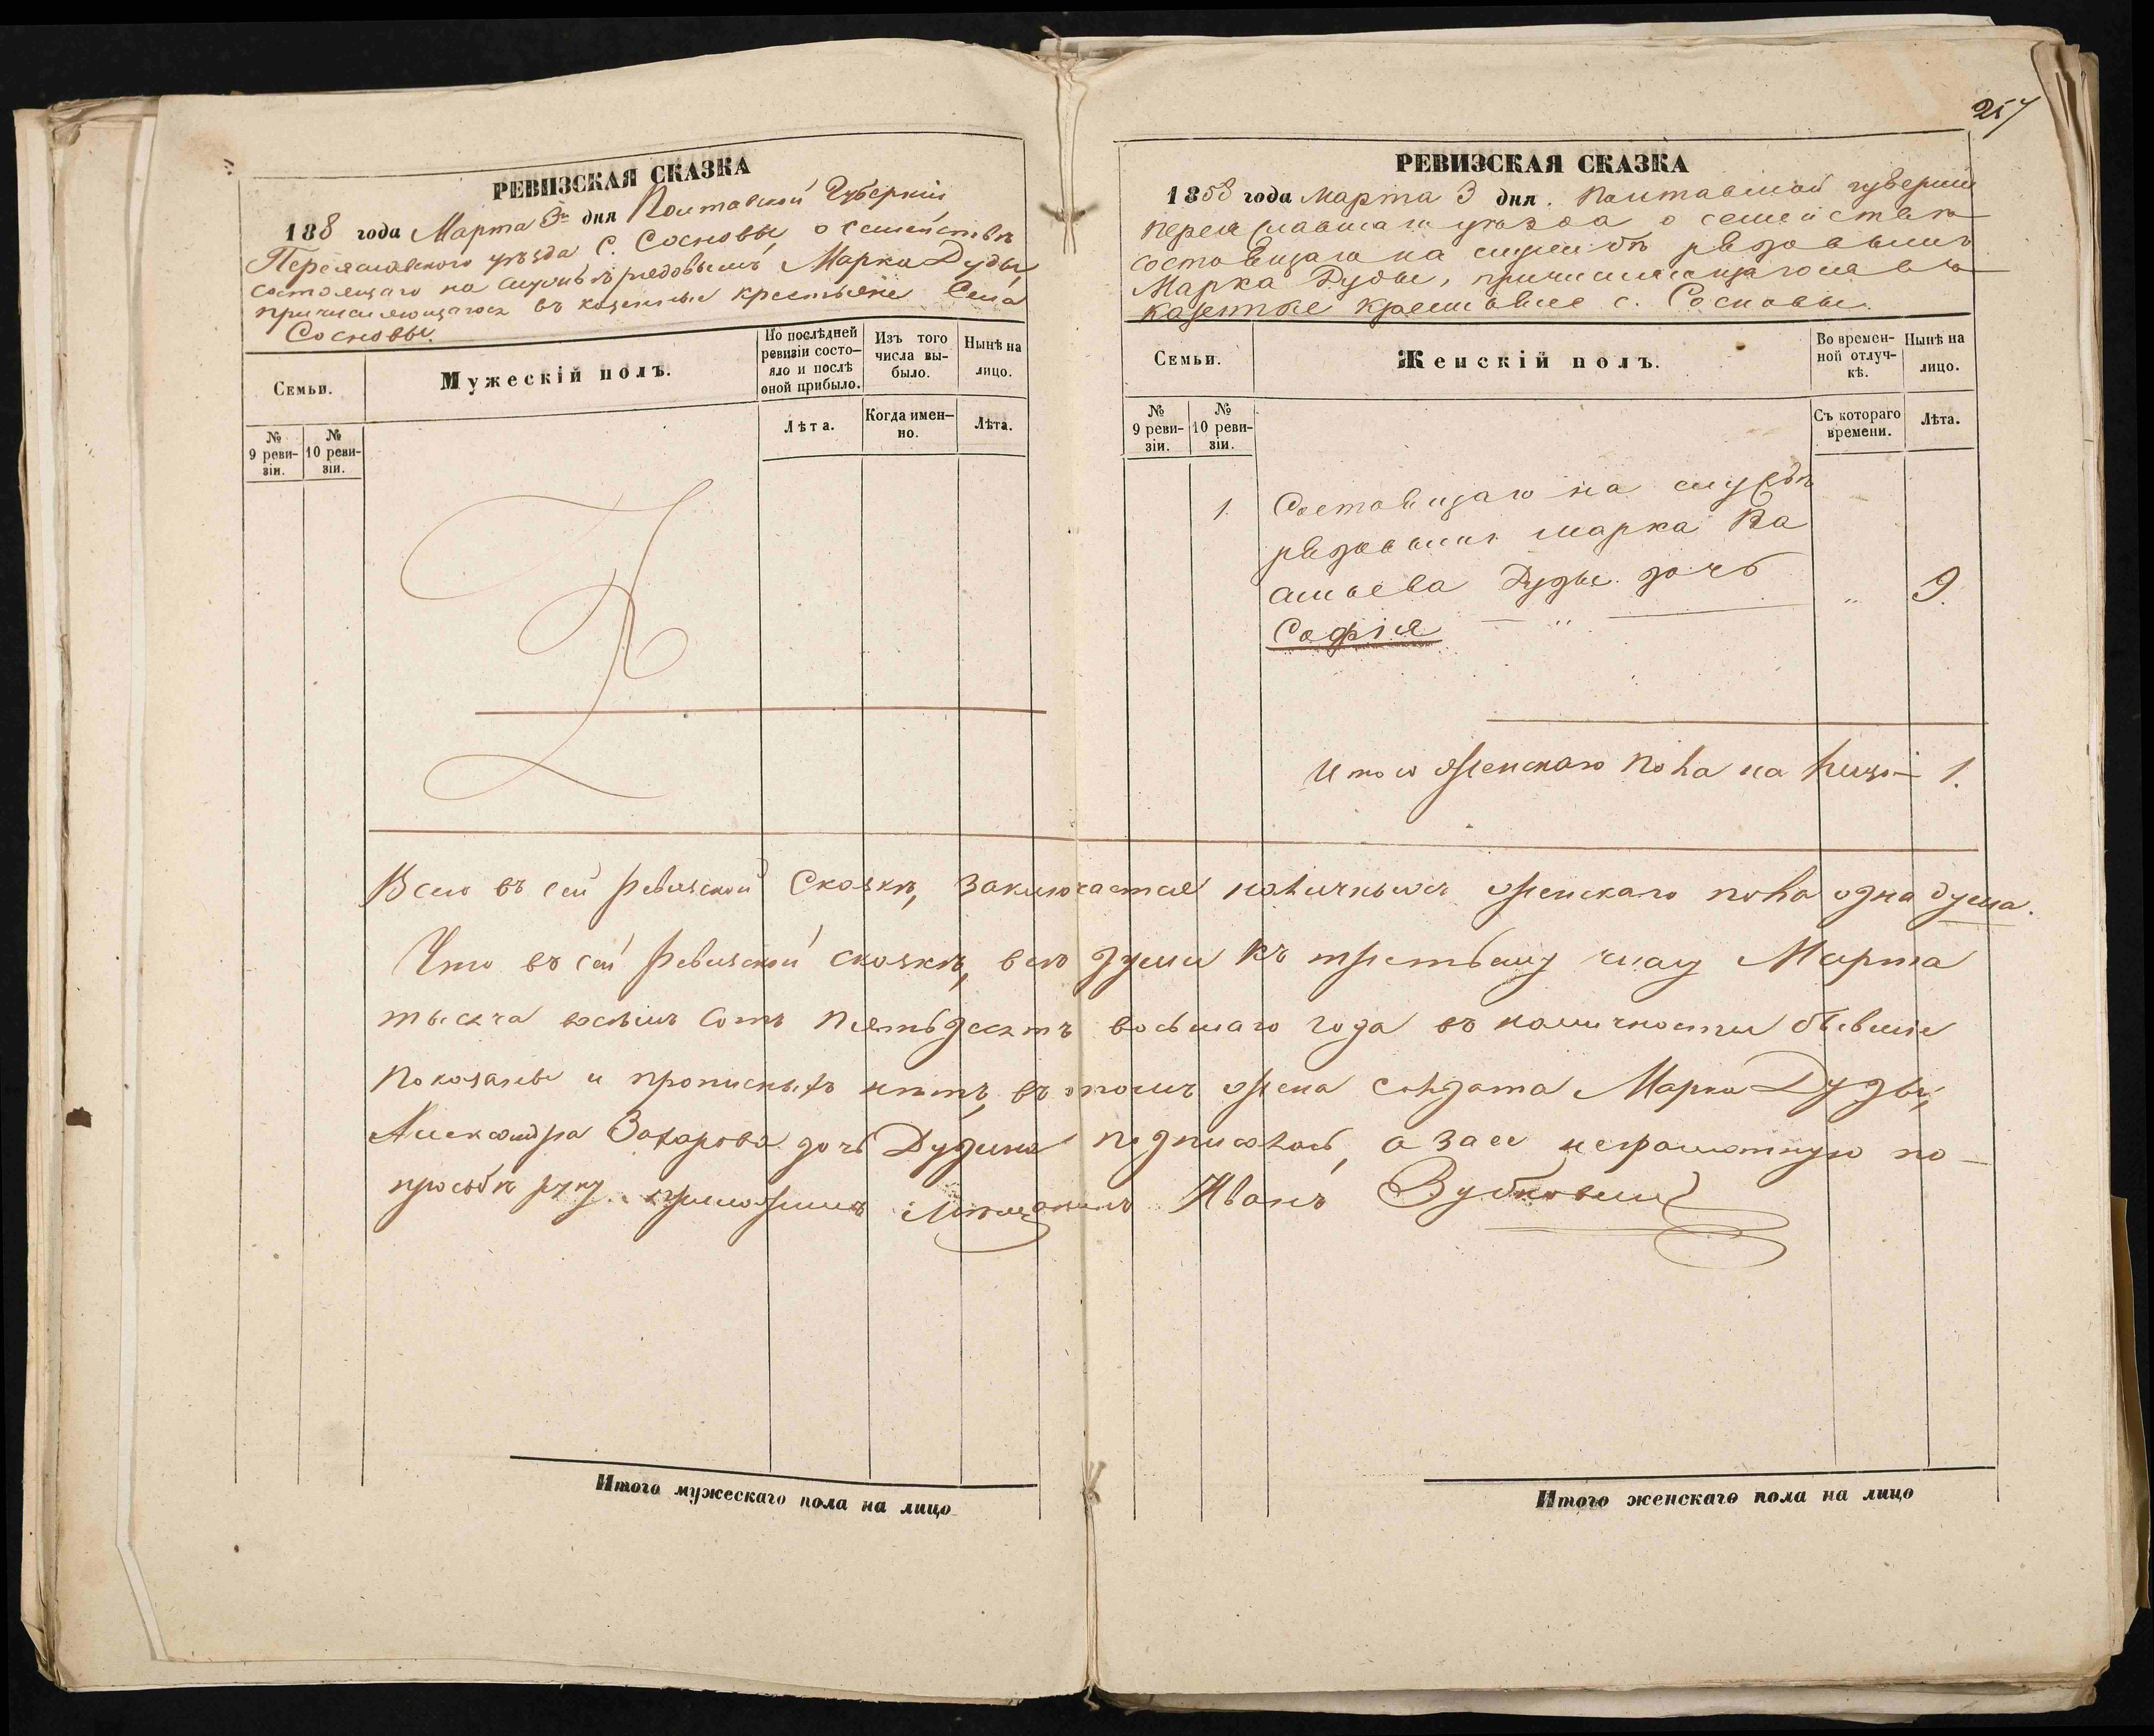 РЕВИЗСКАЯ СКАЗКА
188 года Марта 3 дня Полтавской Губерніи
Переяславского уѣзда с. Сосновы о семействѣ
состоящаго на службѣ рядовымъ Марка Дуды
причисляющагося въ казенные крестьяне Села
Сосновы.
Семьи.
Мужескій полъ.
По послѣдней ревизіи состо-
яло и послѣ
оной прибыло.
Изъ того
числа вы-
было.
Нынѣ на
лицо.
№
9 реви-
зіи.
№
10 реви-
зіи.
Лѣта.
Когда имен-
но.
Лѣта.
Итого мужескаго пола на лицо
257
РЕВИЗСКАЯ СКАЗКА
1858 года Марта 3 дня. Полтавской губерніи
Переяславскаго уѣзда о семействѣ
состоящаго на службѣ рядовымъ
Марка Дуды, причисляющагося въ
казенные крестьяне с. Сосновы.
Семьи.
Женскій полъ.
Во времен-
ной отлуч-
кѣ.
Нынѣ на
лицо.
№
9 реви-
зіи.
№
10 реви-
зіи.
Съ котораго
времени.
Лѣта.
1. Состоящаго на службѣ
рядовымъ Марка Ва
сильева Дуды дочь
Софія — " — " 9.
Итого женскаго пола на лицо — 1.
Всего въ сей ревизской сказкѣ, заключается наличныхъ женскаго пола одна душа.
Что въ сей ревизской сказкѣ, всѣ души къ третьему числу Марта
тысяча восемь сотъ пятьдесятъ восьмаго года въ наличности бывшіе
показаны и прописныхъ нѣтъ, въ томъ жена солдата Марка Дуды,
Александра Захарова дочь Дудина подписалась, а за ее неграмотную по
просьбѣ руку приложилъ Мѣщанинъ Иванъ
Итого женскаго пола на лицо